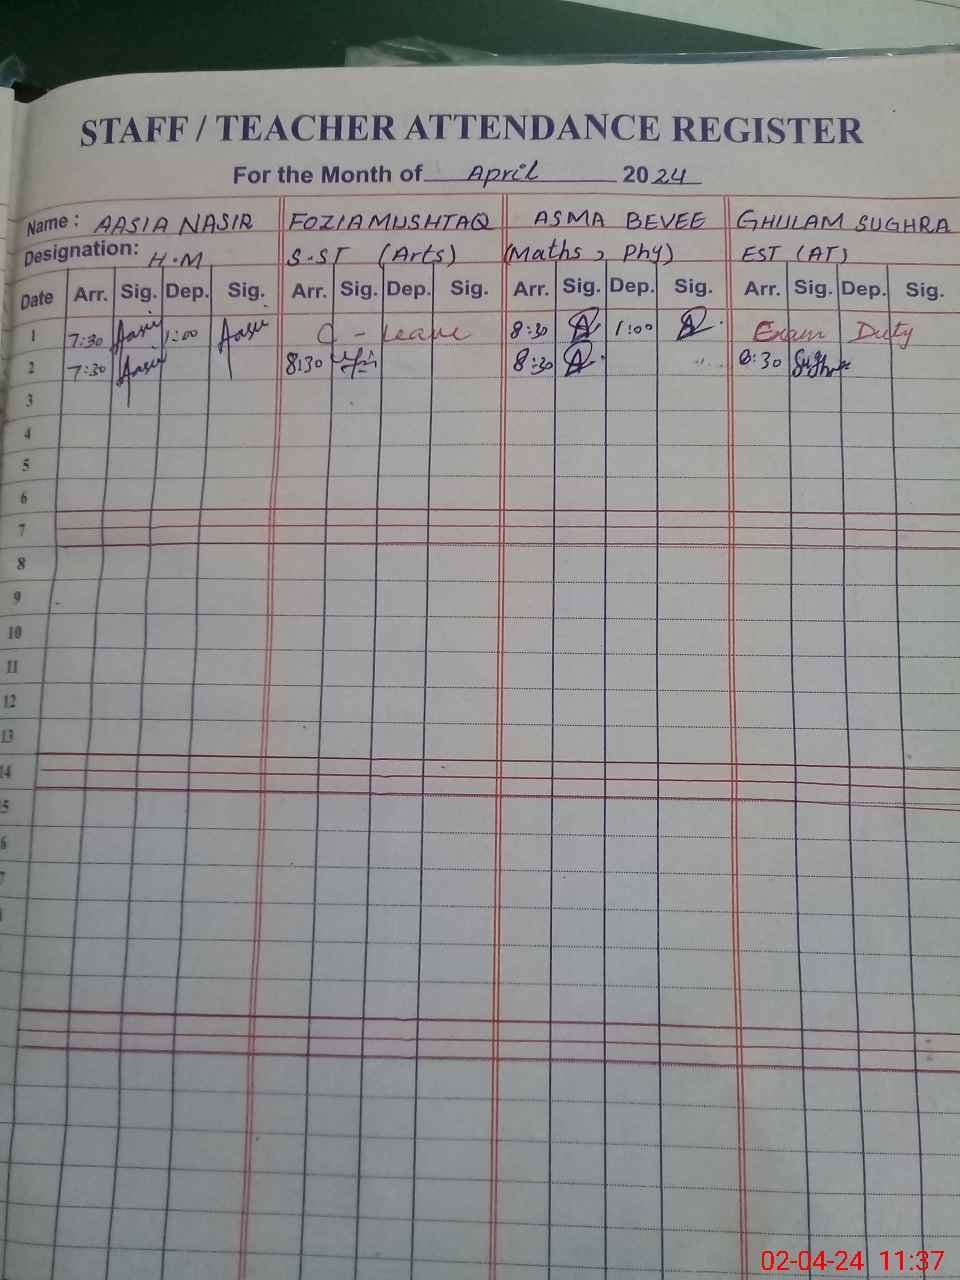 STAFF / TEACHER ATTENDANCE REGISTER
For the Month of April 2024
Name : AASIA NASIR FOZIA MUSHTAQ ASMA BEVEE GHULAM SUGHRA
Designation: H.M S.ST (Arts) (Maths, Phy) EST (AT)
Date Arr. Sig. Dep. Sig. Arr. Sig. Dep. Sig. Arr. Sig. Dep. Sig. Arr. Sig. Dep. Sig.
1 7:30 Aasia 1:00 Aasia C - Leave 8:30 1:00 Exam Duty
2 7:30 Aasia 8:30 8:30 8:30 Sughra
3
4
5
6
7
8
9
10
11
12
13
14
5
6
7
02-04-24 11:37